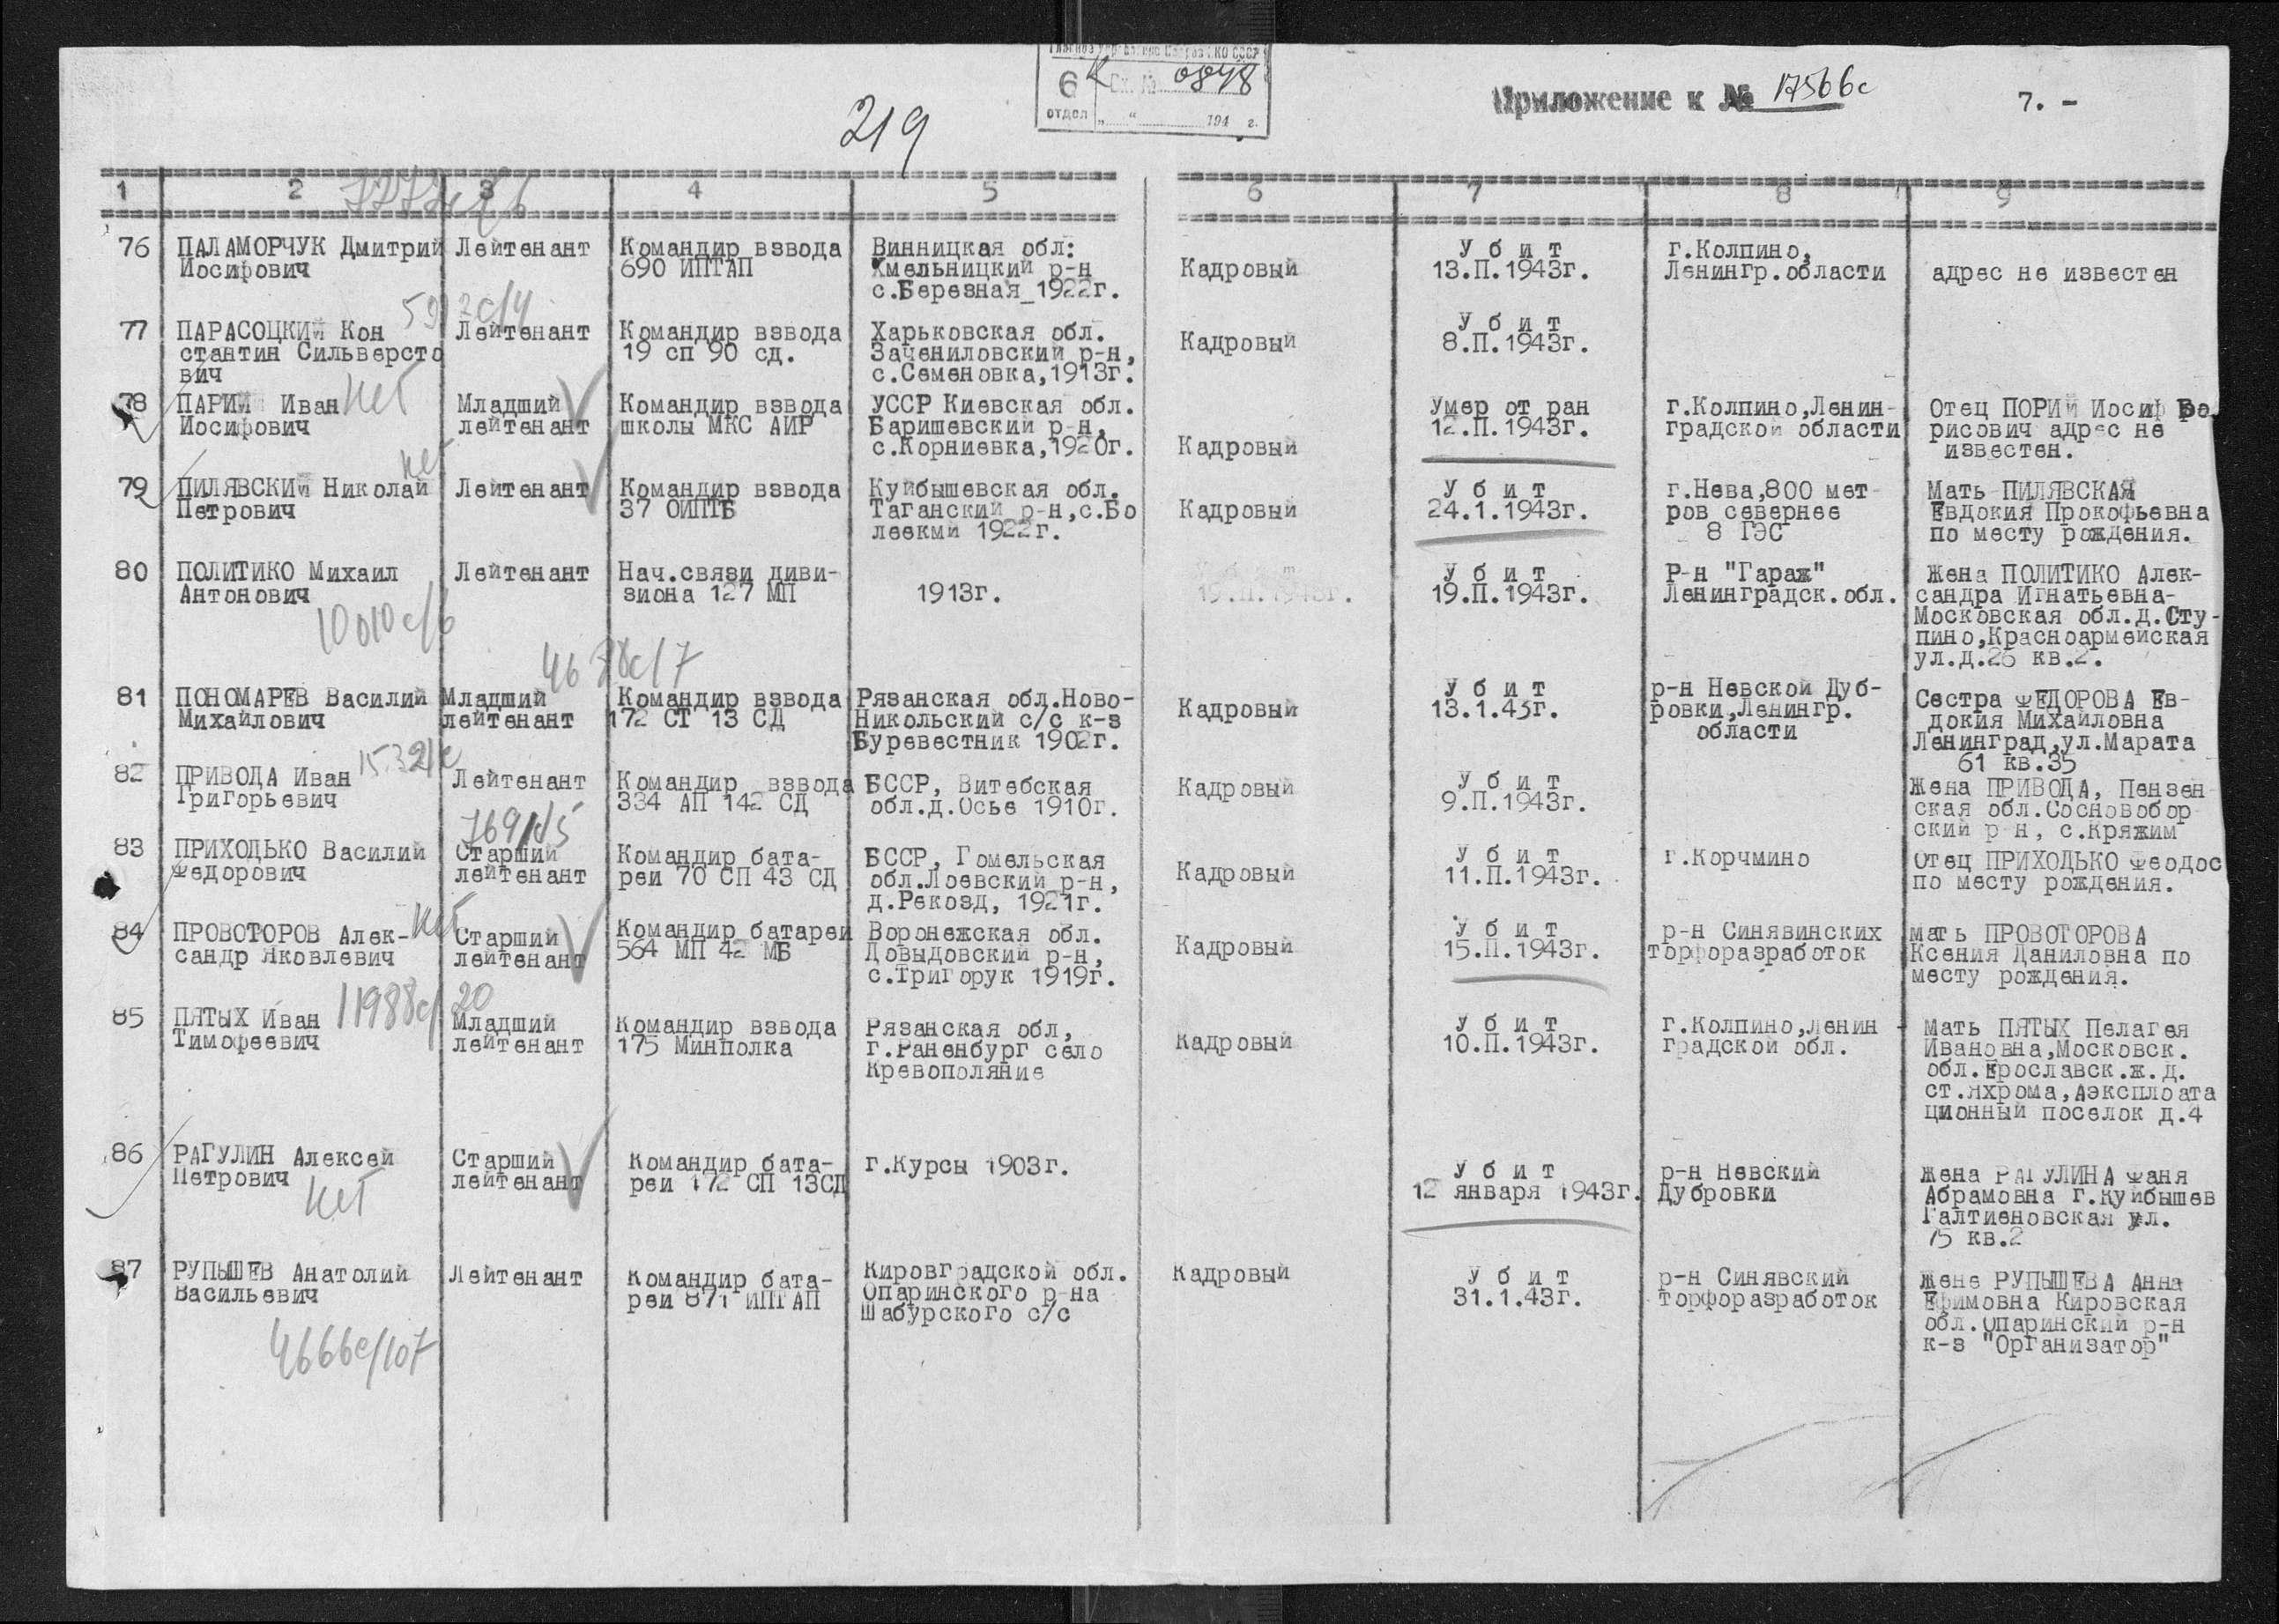 6 К 0848
отдел " " 194 г.
219
Приложение к № 17566с
7. -
1 2 3 4 5 6 7 8 9
7272с/6
76 ПАЛАМОРЧУК Дмитрий Лейтенант Командир взвода Винницкая обл: Убит г.Колпино,
Иосифович 690 ИПТАП Хмельницкий р-н Кадровый 13.П.1943г. Ленингр.области адрес не известен
с.Березная_1922г.
77 ПАРАСОЦКИЙ Кон Лейтенант Командир взвода Харьковская обл. Убит
стантин Сильверсто 19 сп 90 сд. Зачениловский р-н, Кадровый 8.П.1943г.
вич с.Семеновка,1913г.
78 ПАРИЙ Иван нет Младший Командир взвода УССР Киевская обл. Умер от ран г.Колпино,Ленин- Отец ПОРИЙ Иосиф Бо
Иосифович лейтенант школы МКС АИР Баришевский р-н, 12.П.1943г. градской области рисович адрес не
с.Корниевка,1920г. Кадровый известен.
нет
79 ПИЛЯВСКИЙ Николай Лейтенант Командир взвода Куйбышевская обл. Убит г.Нева,800 мет- Мать ПИЛЯВСКАЯ
Петрович 37 ОИПТБ Таганский р-н,с.Бо Кадровый 24.1.1943г. ров севернее Евдокия Прокофьевна
леекми 1922г. 8 ГЭС по месту рождения.
80 ПОЛИТИКО Михаил Лейтенант Нач.связи диви- Убит Р-н "Гараж" Жена ПОЛИТИКО Алек-
Антонович зиона 127 МП 1913г. 19.П.1943г. 19.П.1943г. Ленинградск.обл. сандра Игнатьевна-
10010с/6 Московская обл.д.Сту-
пино,Красноармейская
ул.д.26 кв.2.
4688с/7
81 ПОНОМАРЕВ Василий Младший Командир взвода Рязанская обл.Ново- Убит р-н Невской Дуб- Сестра ФЕДОРОВА Ев-
Михайлович лейтенант 172 СТ 13 СД Никольский с/с к-з Кадровый 13.1.43г. ровки,Ленингр. докия Михайловна
Буревестник 1902г. области Ленинград,ул.Марата
61 кв.35
82 ПРИВОДА Иван Лейтенант Командир взвода БССР, Витебская Кадровый Убит Жена ПРИВОДА, Пензен
Григорьевич 334 АП 142 СД обл.д.Осье 1910г. 9.П.1943г. ская обл.Сосновобор
ский р-н, с.Кряжим
83 ПРИХОДЬКО Василий Старший Командир бата- БССР, Гомельская Убит г.Корчмино Отец ПРИХОДЬКО Феодос
Федорович лейтенант реи 70 СП 43 СД обл.Лоевский р-н, Кадровый 11.П.1943г. по месту рождения.
д.Рекозд, 1921г.
84 ПРОВОТОРОВ Алек- нет Старший Командир батареи Воронежская обл. Убит р-н Синявинских мать ПРОВОТОРОВА
сандр Яковлевич лейтенант 564 МП 42 МБ Довыдовский р-н, Кадровый 15.П.1943г. торфоразработок Ксения Даниловна по
с.Тригорук 1919г. месту рождения.
11988с/20
85 ПЯТЫХ Иван Младший Командир взвода Рязанская обл, Убит г.Колпино,Ленин- Мать ПЯТЫХ Пелагея
Тимофеевич лейтенант 175 Минполка г.Раненбург село Кадровый 10.П.1943г. градской обл. Ивановна,Московск.
Кревополяние обл.Ярославск.ж.д.
ст.Яхрома,Аэксплоата
ционный поселок д.4
86 РАГУЛИН Алексей Старший Командир бата- г.Курсы 1903г. Убит р-н Невский Жена РАГУЛИНА Фаня
Петрович лейтенант реи 172 СП 13СД 12 января 1943г. Дубровки Абрамовна г.Куйбышев
нет Галтиеновская ул.
75 кв.2
87 РУПЫШЕВ Анатолий Лейтенант Командир бата- Кировградской обл. Кадровый Убит р-н Синявский Жене РУПЫШЕВА Анна
Васильевич реи 871 ИПТАП Опаринского р-на 31.1.43г. торфоразработок Ефимовна Кировская
Шабурского с/с обл.Опаринский р-н
4666с/107 к-з "Организатор"